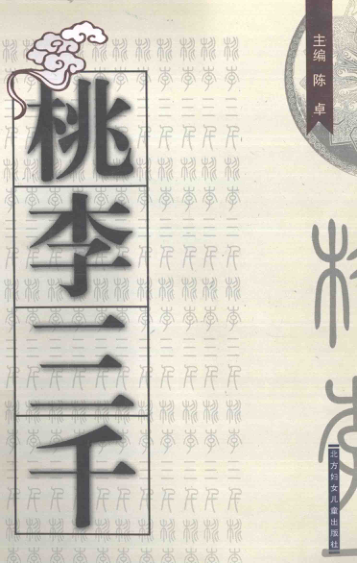 桃李三千
主编 陈卓
北方妇女儿童出版社
桃李